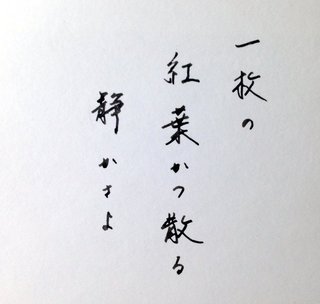 一枚の
紅葉かつ散る
静かさよ